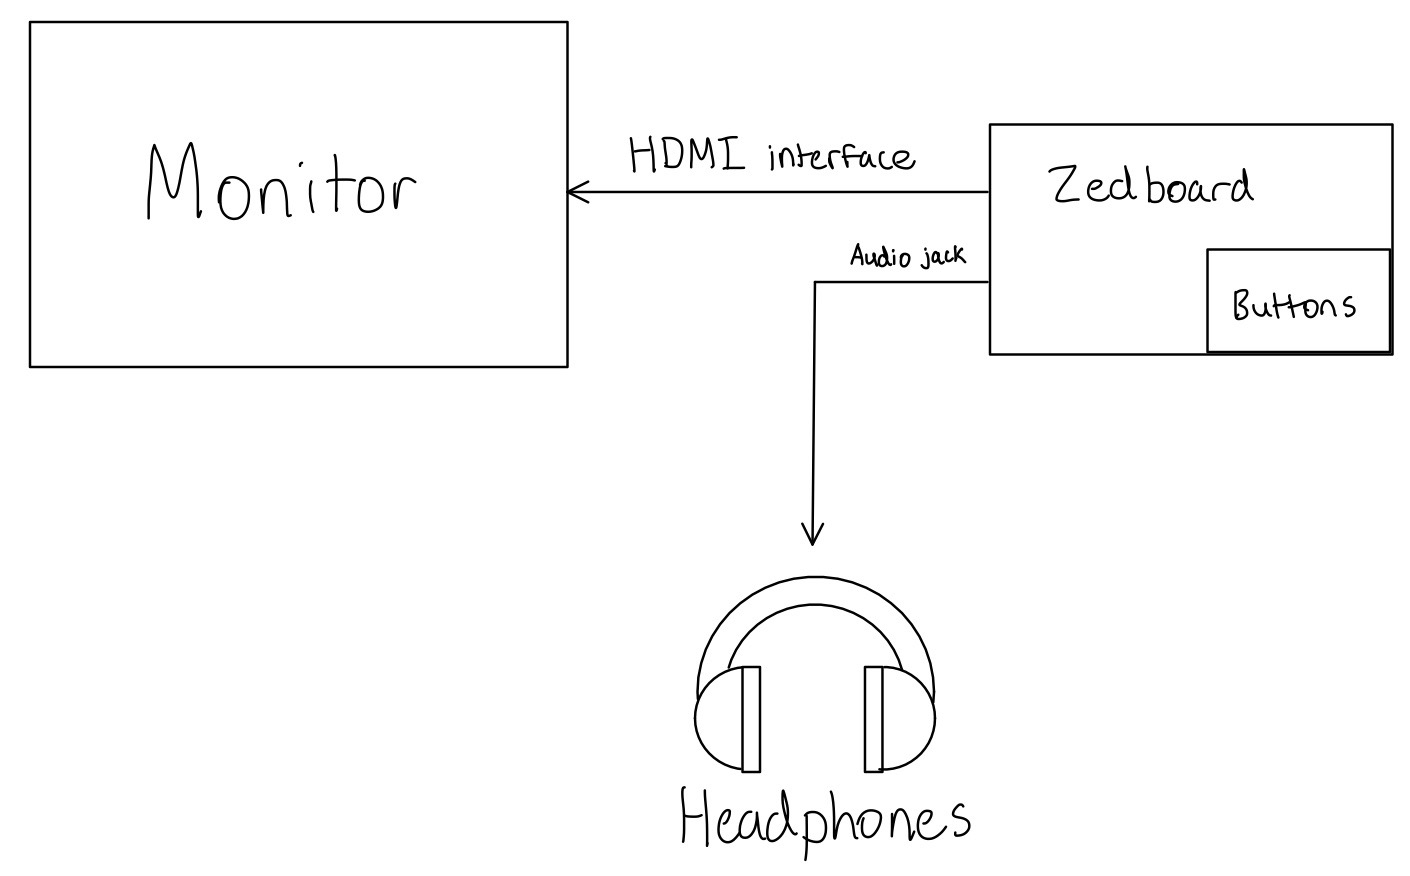 Monitor
HDMI interface
Zedboard
Audio jack
Buttons
Headphones